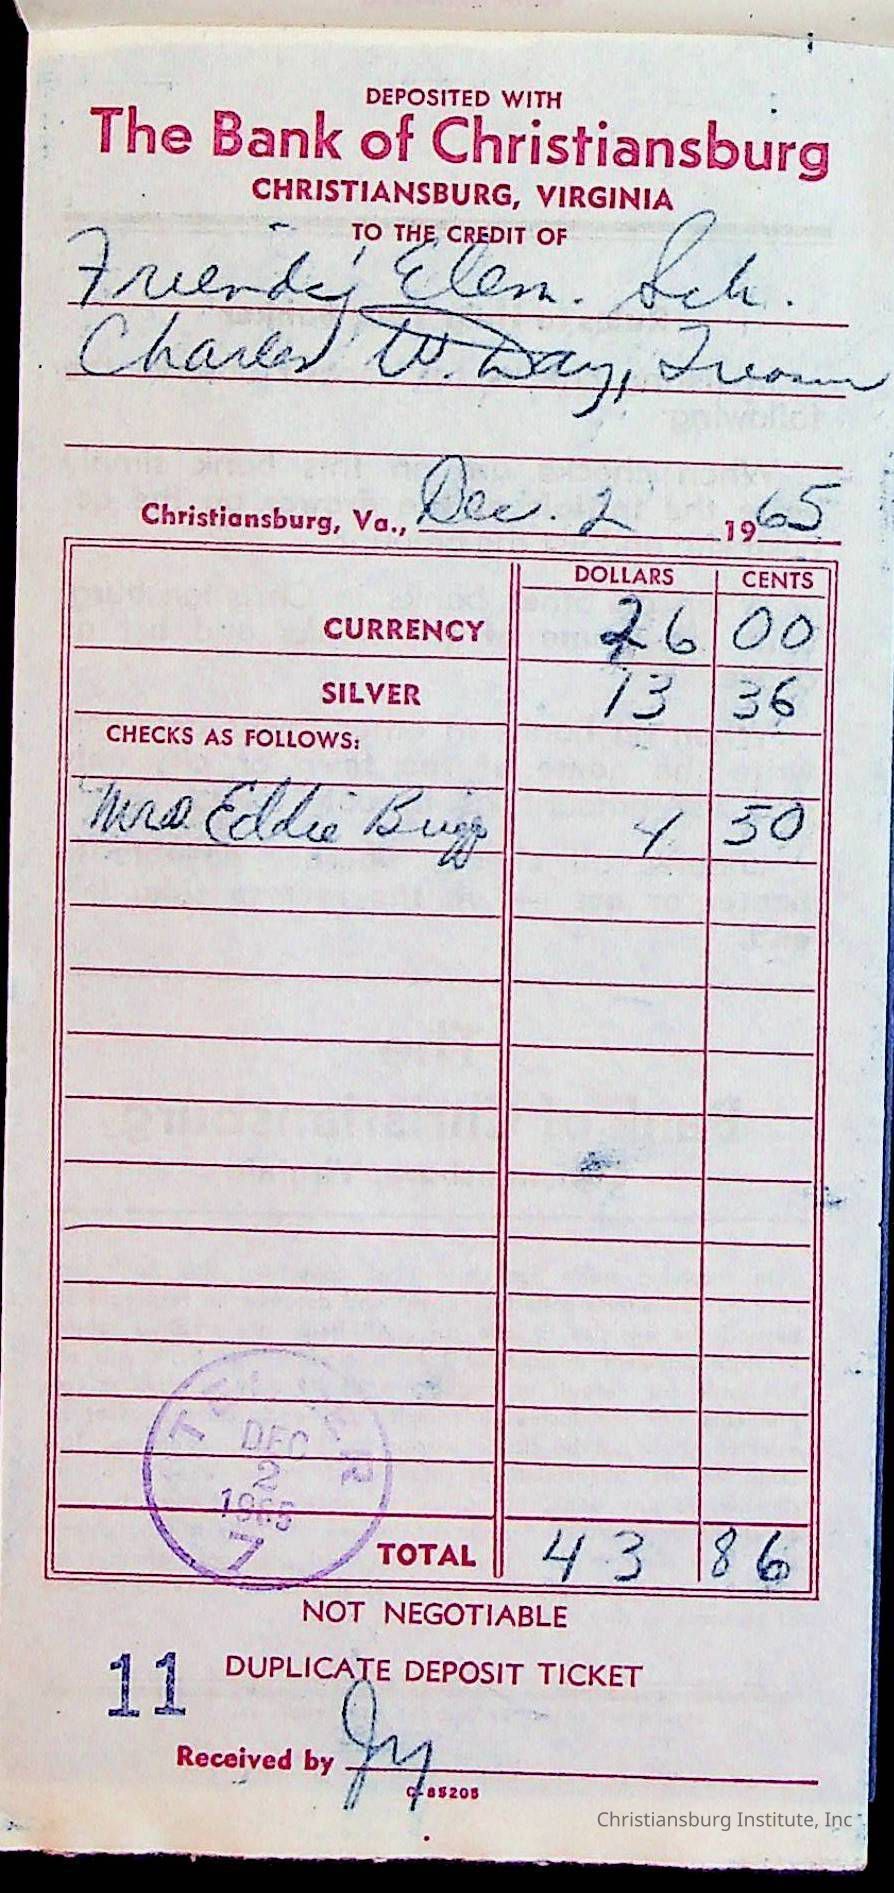 DEPOSITED WITH
The Bank of Christiansburg
CHRISTIANSBURG, VIRGINIA
TO THE CREDIT OF
Friends' Elem. Sch.
Charles W. Day,
Christiansburg, Va., Dec. 2 1965
DOLLARS CENTS
CURRENCY 26 00
SILVER 13 36
CHECKS AS FOLLOWS:
Mrs Eddie Briggs 4 50
TELLER
DEC
2
1965
7
TOTAL 43 86
NOT NEGOTIABLE
11 DUPLICATE DEPOSIT TICKET
Received by
C-85205
Christiansburg Institute, Inc